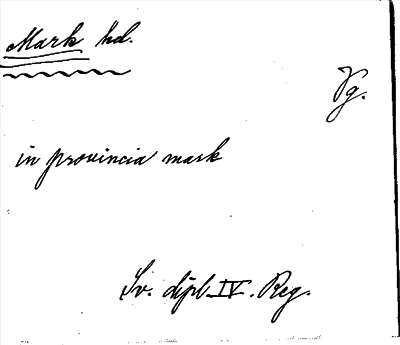 Mark hd.
Vg.
in provincia mark
Sv. dipl IV. Reg.